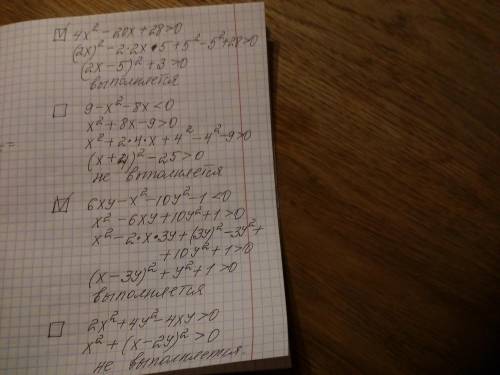 ☑ 4x² - 20x + 28 > 0
(2x)² - 2·2x·5 + 5² - 5² + 28 > 0
(2x - 5)² + 3 > 0
выполняется
☐ 9 - x² - 8x < 0
x² + 8x - 9 > 0
x² + 2·4·x + 4² - 4² - 9 > 0
(x + 4)² - 25 > 0
не выполняется
☑ 6xy - x² - 10y² - 1 < 0
x² - 6xy + 10y² + 1 > 0
x² - 2·x·3y + (3y)² - 3y² +
+ 10y² + 1 > 0
(x - 3y)² + y² + 1 > 0
выполняется
☐ 2x² + 4y² - 4xy > 0
x² + (x - 2y)² > 0
не выполняется.